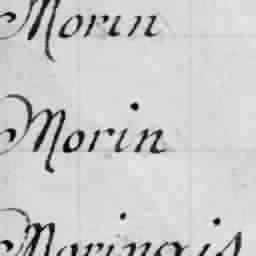 Morin
Morin
Moringis